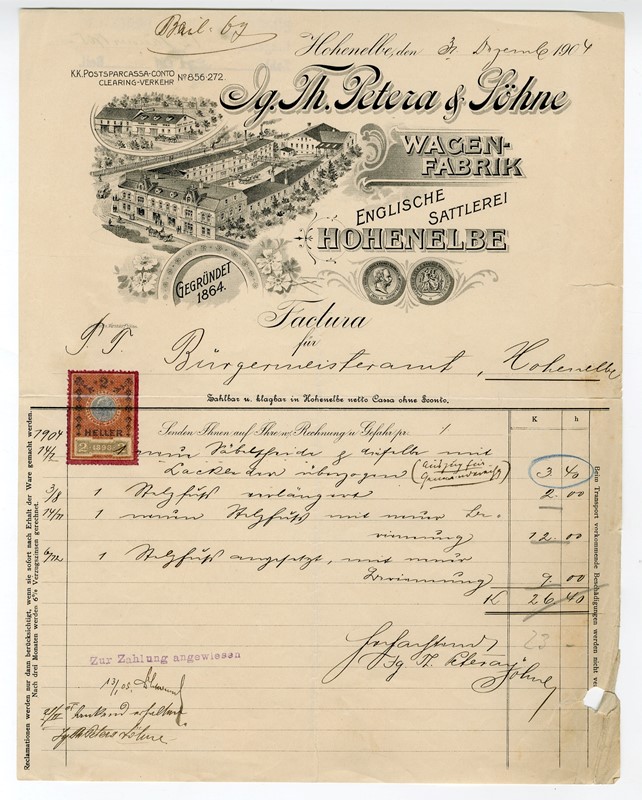 Beil. 67
Hohenelbe, den 31 Dezemb 1904
K.K. POSTSPARCASSA-CONTO
CLEARING-VERKEHR
№ 856·272.
Ig. Th. Petera & Söhne
WAGEN-
FABRIK
ENGLISCHE
SATTLEREI
HOHENELBE
GEGRÜNDET
1864.
Factura
für
P. T. Bürgermeisteramt, Hohenelbe
Zahlbar u. klagbar in Hohenelbe netto Cassa ohne Sconto.
2
HELLER
2 1898
K h
1904 Senden Ihnen auf Ihre Rechnung u. Gefahr pr.
1 neue Säbelscheide & dieselbe mit
Lackleder überzogen 3 40
3/8 1 Stelzfuß verlängert 2 00
14/11 1 neuen Stelzfuß mit neuer Be-
riemung 12 00
6/12 1 Stelzfuß angesetzt, mit neuer
Beriemung 9 00
K 26 40
23
Hochachtend
Ig. T. Petera & Söhne
Zur Zahlung angewiesen
13/1 05.
dankend erhalten
Ig Th Petera & Söhne
Reclamationen werden nur dann berücksichtigt, wenn sie sofort nach Erhalt der Ware gemacht werden.
Nach drei Monaten werden 6% Verzugszinsen gerechnet.
Beim Transport vorkommende Beschädigungen werden nicht